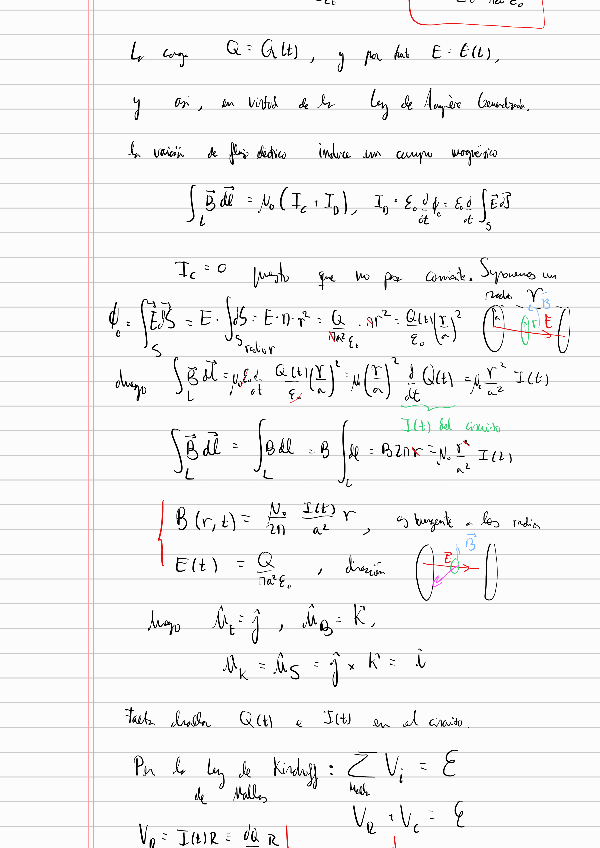 La carga Q = Q(t), y por tanto E = E(t),
y así, en virtud de la Ley de Ampère Generalizada.
la variación de flujo eléctrico induce un campo magnético
∫_L B⃗ dl⃗ = μ₀ (I_C + I_D), I_D = ε₀ d/dt ϕ_e = ε₀ d/dt ∫_S E⃗ dS⃗
I_C = 0 puesto que no pasa corriente. Suponemos un
radio r
B⃗
a r E
ϕ_e = ∫_S E⃗ dS⃗ = E · ∫_S dS = E · π · r² = Q/(πa²ε₀) · πr² = Q(t)/ε₀ (r/a)²
luego ∫_L B⃗ dl⃗ = μ₀ε₀ d/dt Q(t)/ε₀ (r/a)² = μ₀ (r/a)² d/dt Q(t) = μ₀ r²/a² I(t)
I(t) del circuito
∫_L B⃗ dl⃗ = ∫_L B dl = B ∫_L dl = B 2πr = μ₀ r²/a² I(t)
B(r,t) = μ₀/2π I(t)/a² r, es tangente a los radios
E(t) = Q/(πa²ε₀), dirección
E B⃗
luego û_E = ĵ, û_B = k̂,
û_K = û_S = ĵ × k̂ = î
Falta hallar Q(t) e I(t) en el circuito.
Por la Ley de Kirchoff : Σ V_i = ε
de Mallas Malla
V_R + V_C = ε
V_R = I(t)R = dQ R